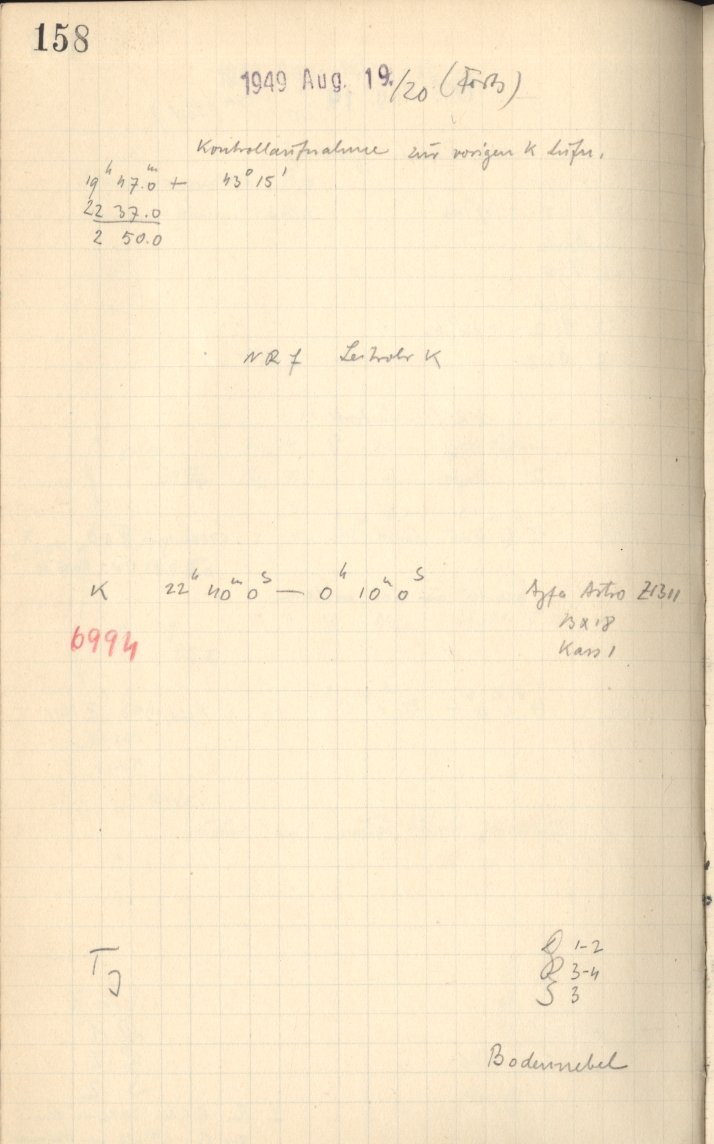 158
1949 Aug. 19./20 (Forts)
Kontrollaufnahme zur vorigen K Aufn.
19ʰ 47.0ᵐ + 43° 15'
22 37.0
2 50.0
NR 7 Leitrohr K
K 22ʰ 40ᵐ 0ˢ — 0ʰ 10ᵐ 0ˢ Agfa Astro Z1311
6994 13x18
Kass 1
D 1-2
TJ R 3-4
S 3
Bodennebel